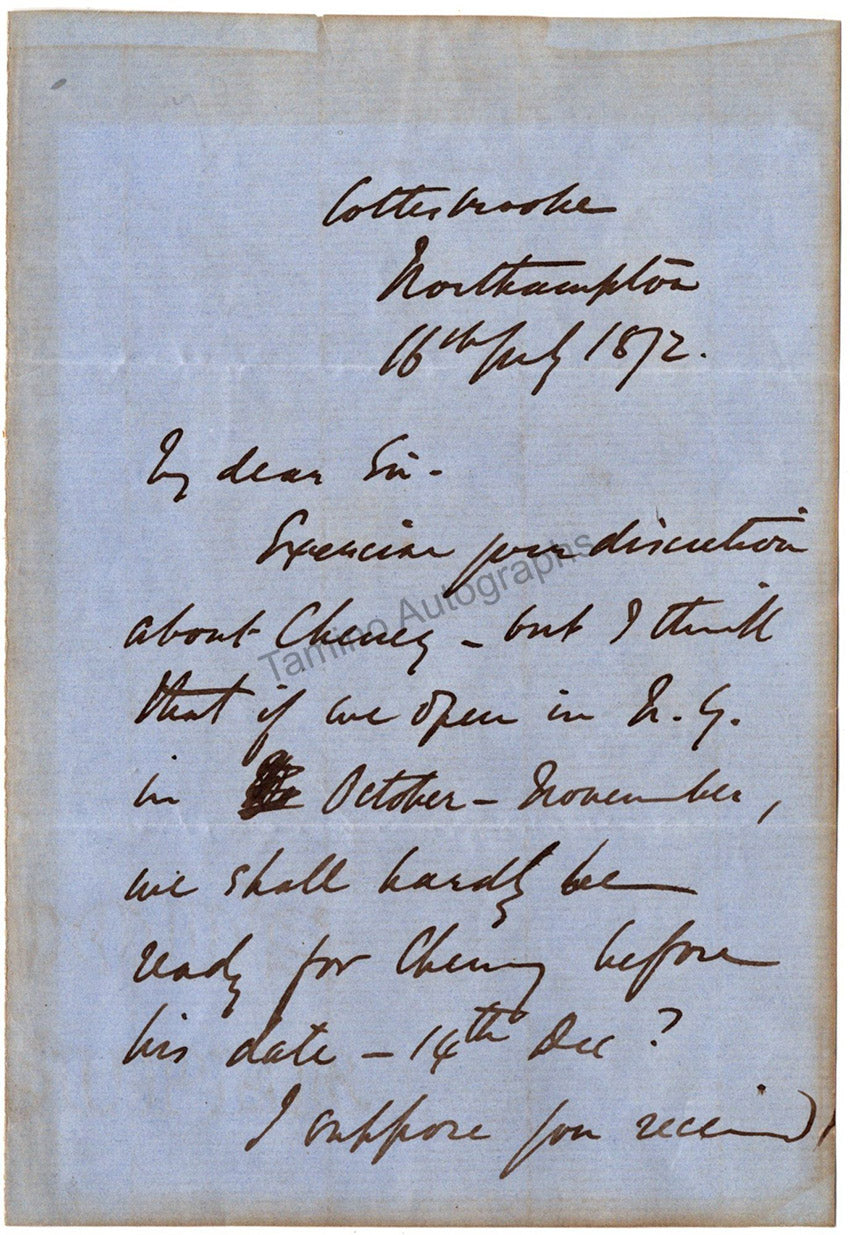 Cottesbrooke
Northampton
16th July 1872.
My dear Sir -
Exercise your discretion
about Cheney - but I think
that if we open in N.Y.
in October - November,
we shall hardly be
ready for Cheney before
his date - 14th Dec ?
I suppose you received
Tamino Autographs